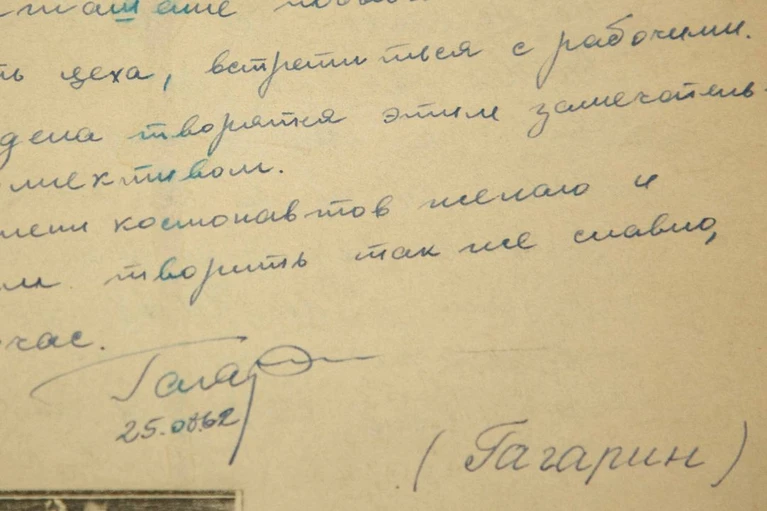 ть цеха, встретиться с рабочими.
дела творятся этим замечатель-
лективом.
мени космонавтов желаю и
м творить так же славно,
час.
Гагар
25.08.62
(Гагарин)